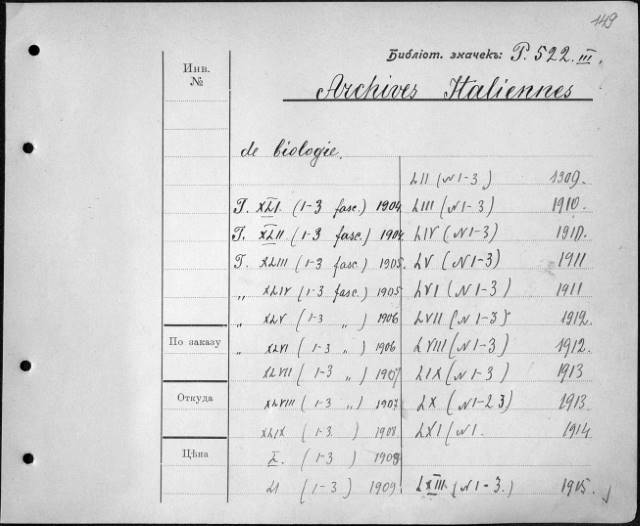 149
Библіот. значекъ: P. 522. III.
Инв. №
Archives Italiennes
de biologie.
T. XLI. (1-3 fasc.) 1904.
T. XLII (1-3 fasc.) 1904.
T. XLIII (1-3 fasc.) 1905.
„ XLIV (1-3 fasc.) 1905
„ XLV (1-3 „ ) 1906
„ XLVI (1-3 „ ) 1906
XLVII (1-3 „ ) 1907
XLVIII (1-3 „ ) 1907
XLIX (1-3. ) 1908
L. (1-3 ) 1908
LI (1-3 ) 1909
LII (N1-3) 1909.
LIII (N1-3) 1910.
LIV (N1-3) 1910.
LV (N1-3) 1911
LVI (N1-3) 1911
LVII (N1-3) 1912.
LVIII (N1-3) 1912.
LIX (N1-3) 1913
LX (N1-2 3) 1913.
LXI (N1. 1914
LXIII. (N1-3.) 1915.
По заказу
Откуда
Цѣна